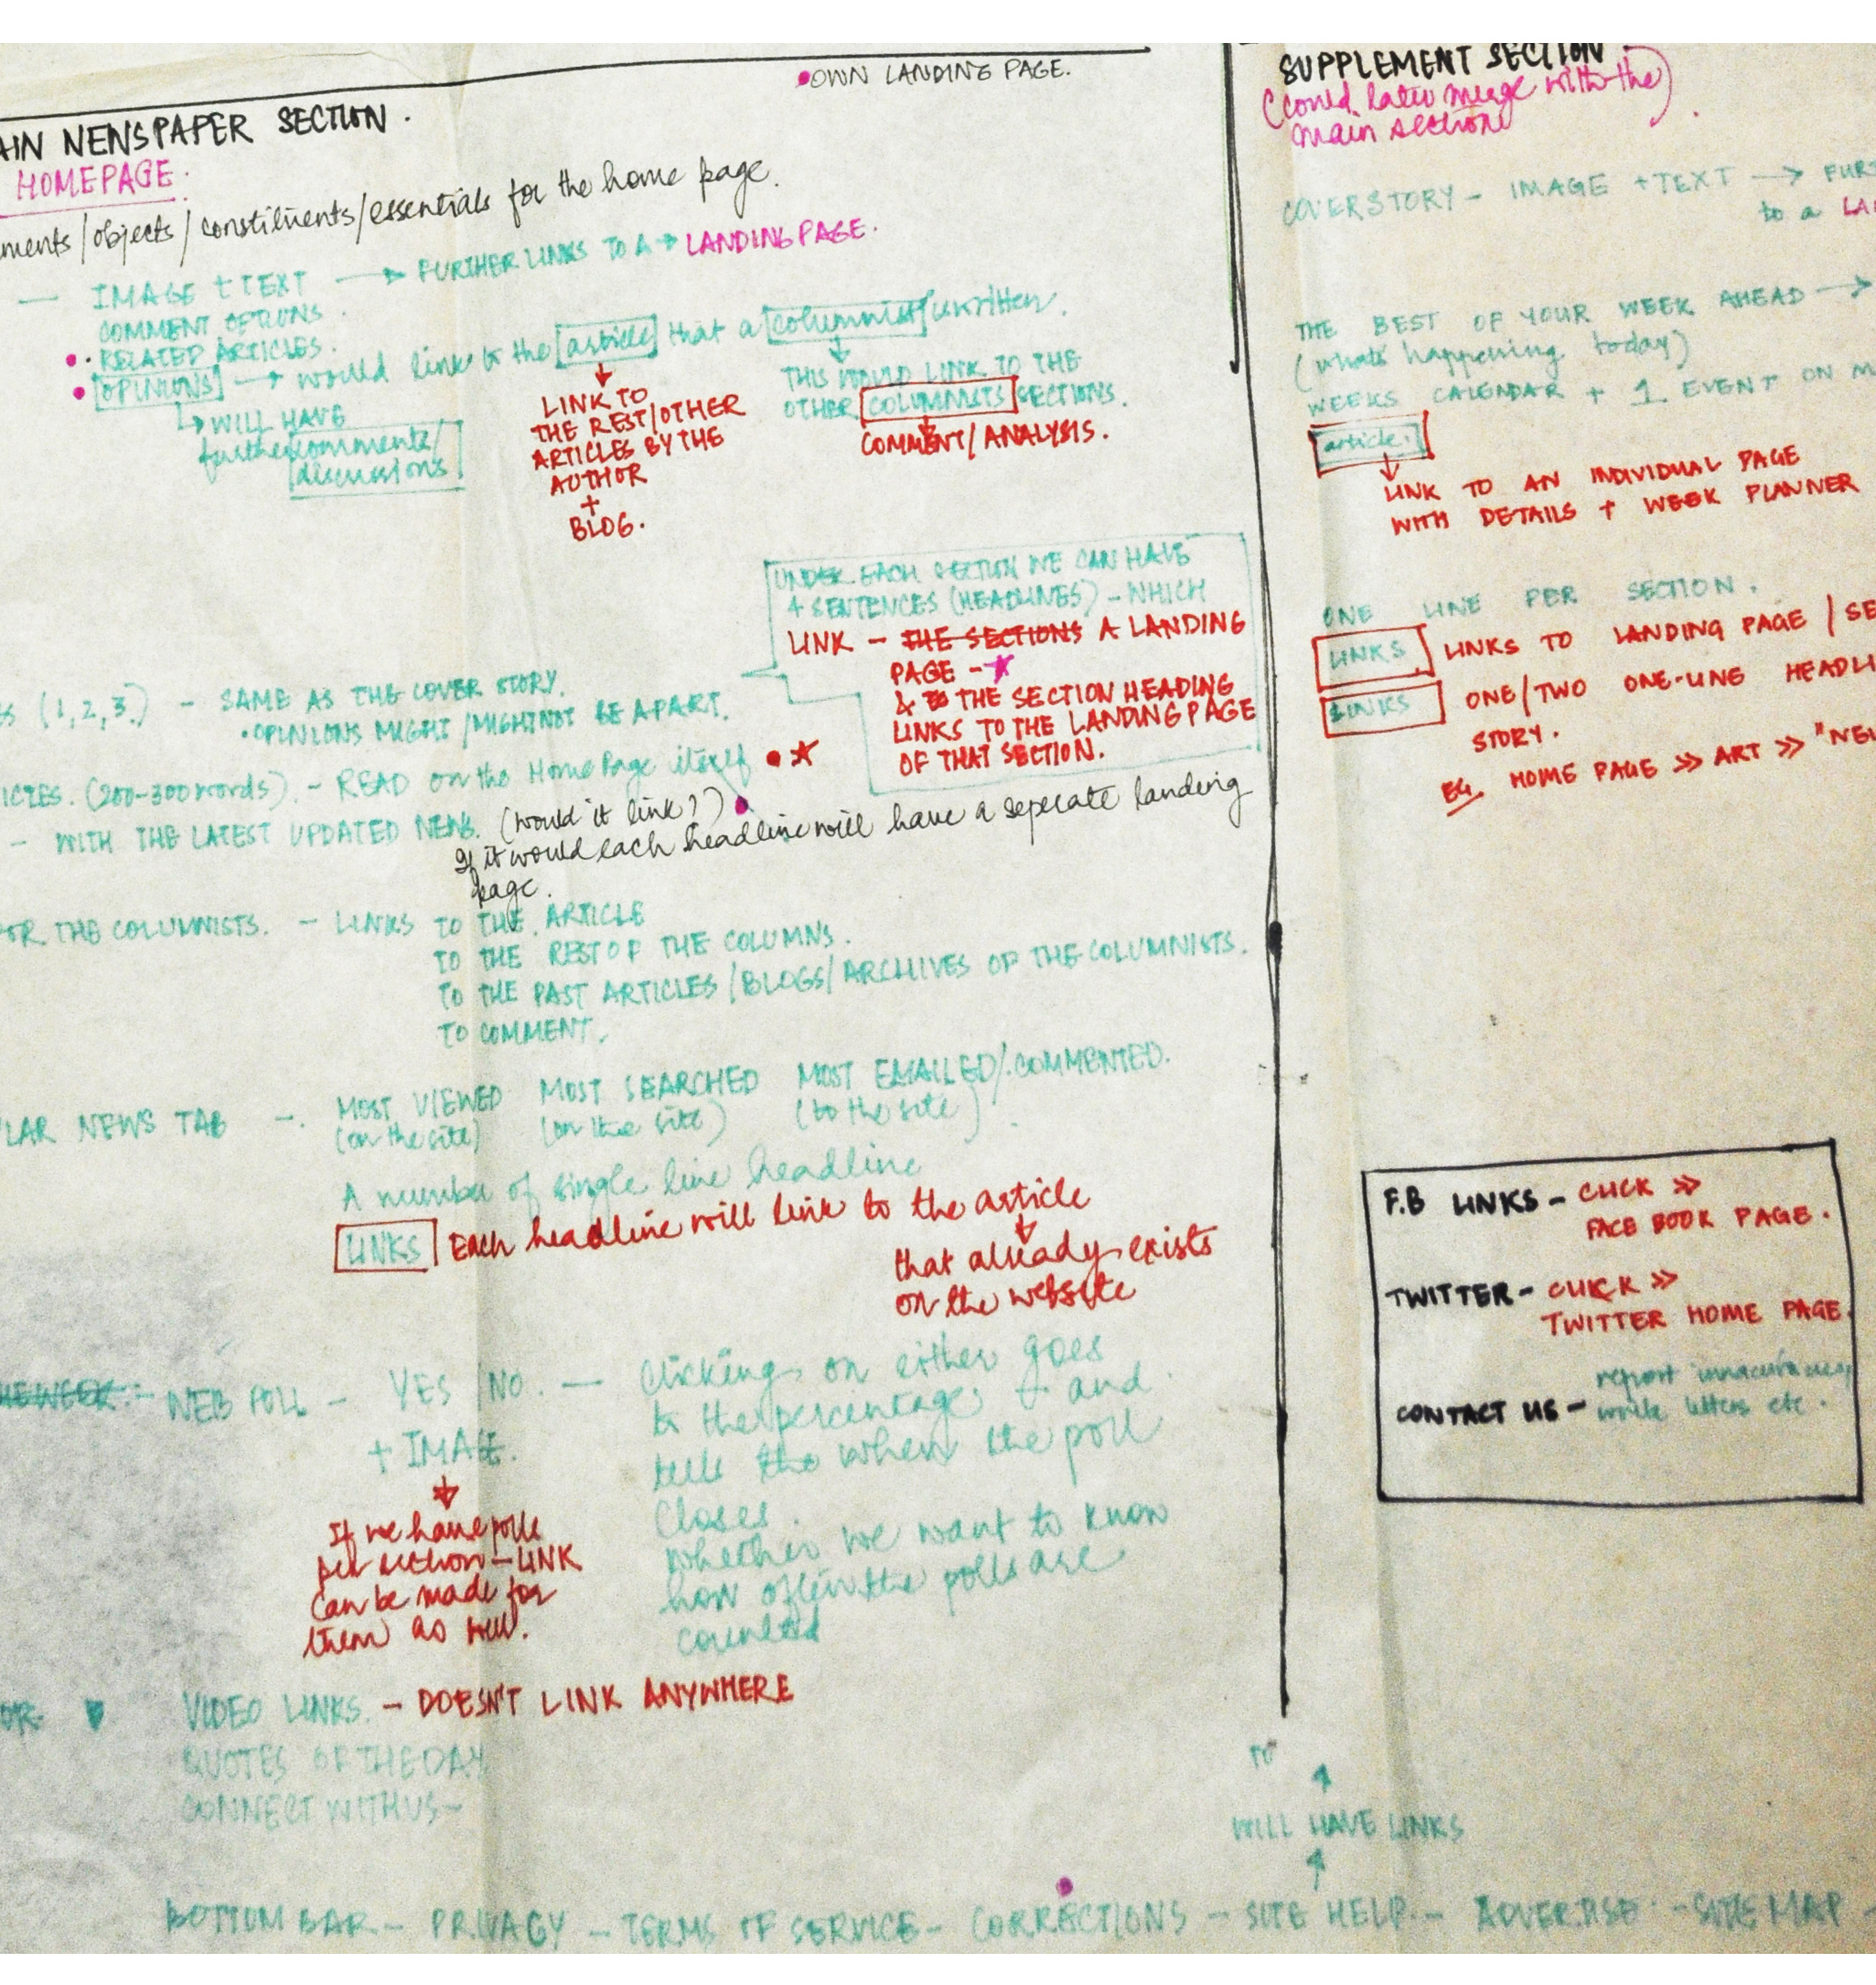 OWN LANDING PAGE.
AIN NEWSPAPER SECTION.
HOMEPAGE.
ments/objects/constituents/essentials for the home page.
— IMAGE + TEXT → FURTHER LINKS TO A → LANDING PAGE.
COMMENT OPTIONS.
• RELATED ARTICLES.
OPINIONS → would link to the article that a columnist written.
↳ WILL HAVE
further comments/
discussions
LINK TO
THE REST/OTHER
ARTICLES BY THE
AUTHOR
+
BLOG.
THIS WOULD LINK TO THE
OTHER COLUMNISTS SECTIONS.
COMMENT/ANALYSIS.
UNDER EACH SECTION WE CAN HAVE
4 SENTENCES (HEADLINES) - WHICH
LINK - THE SECTIONS A LANDING
PAGE -
& TO THE SECTION HEADING
LINKS TO THE LANDING PAGE
OF THAT SECTION.
ES (1,2,3.) - SAME AS THE COVER STORY.
• OPINIONS MIGHT/MIGHT NOT BE A PART.
ICLES. (200-300 words). - READ on the Home Page itself
- WITH THE LATEST UPDATED NEWS. (would it link?)
If it would each headline will have a seperate landing
page.
FOR THE COLUMNISTS. - LINKS TO THE ARTICLE
TO THE REST OF THE COLUMNS.
TO THE PAST ARTICLES/BLOGS/ARCHIVES OF THE COLUMNISTS.
TO COMMENT.
LAR NEWS TAB - MOST VIEWED MOST SEARCHED MOST EMAILED/COMMENTED.
(on the site) (on the site) (to the site)
A number of single line headline
LINKS Each headline will link to the article
that already exists
on the website
HE WEEK:- WEB POLL - YES/NO. — Clicking on either goes
to the percentage + and
+ IMAGE.
tells the when the poll
closes.
whether we want to know
how often the polls are
counted
If we have polls
per section - LINK
can be made for
them as well.
OR VIDEO LINKS. - DOESN'T LINK ANYWHERE
QUOTES OF THE DAY
CONNECT WITH US -
TO
WILL HAVE LINKS
BOTTOM BAR - PRIVACY - TERMS OF SERVICE - CORRECTIONS - SITE HELP - ADVERTISE - SITE MAP -
SUPPLEMENT SECTION.
(could later merge with the)
main section
COVERSTORY - IMAGE + TEXT → FUR
to a LA
THE BEST OF YOUR WEEK AHEAD →
(whats happening today)
WEEKS CALENDAR + 1 EVENT ON M
article.
LINK TO AN INDIVIDUAL PAGE
WITH DETAILS + WEEK PLANNER
ONE LINE PER SECTION.
LINKS LINKS TO LANDING PAGE/SE
LINKS ONE/TWO ONE-LINE HEADLI
STORY.
EG. HOME PAGE >> ART >> "NEW
F.B LINKS - CLICK >>
FACE BOOK PAGE.
TWITTER - CLICK >>
TWITTER HOME PAGE.
CONTACT US - report innacuracies,
write letters etc.